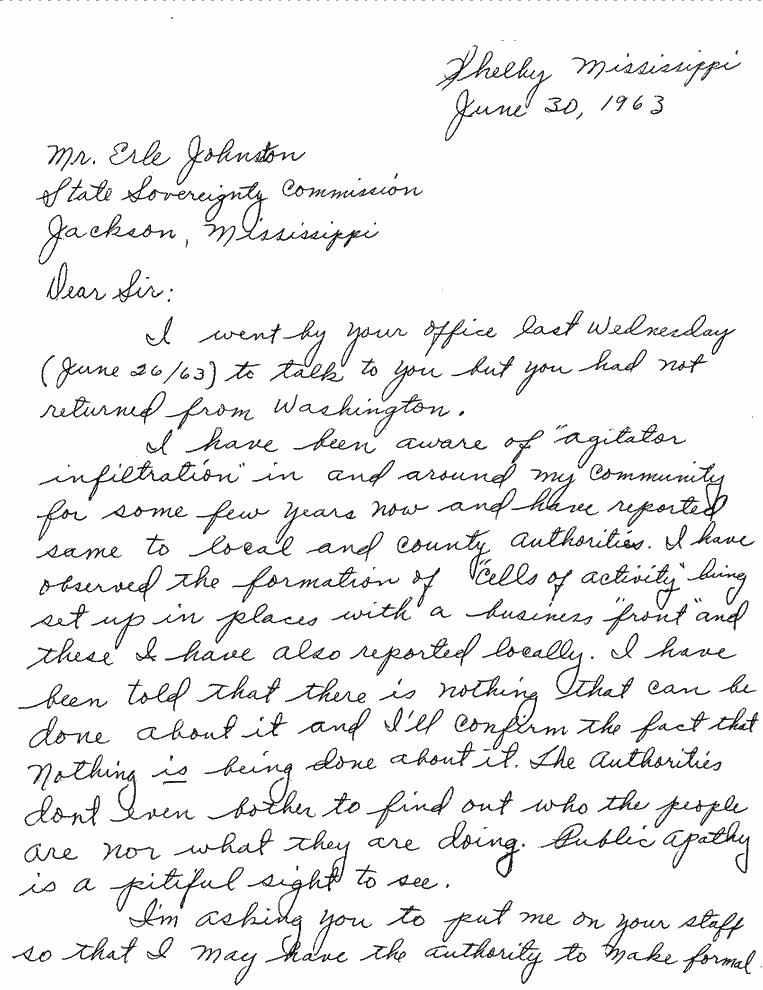 Shelby Mississippi
June 30, 1963
Mr. Erle Johnston
State Sovereignty Commission
Jackson, Mississippi
Dear Sir:
I went by your office last Wednesday
(June 26/63) to talk to you but you had not
returned from Washington.
I have been aware of "agitator
infiltration" in and around my community
for some few years now and have reported
same to local and county authorities. I have
observed the formation of "cells of activity" being
set up in places with a business "front" and
these I have also reported locally. I have
been told that there is nothing that can be
done about it and I'll confirm the fact that
nothing is being done about it. The authorities
dont even bother to find out who the people
are nor what they are doing. Public apathy
is a pitiful sight to see.
I'm asking you to put me on your staff
so that I may have the authority to make formal